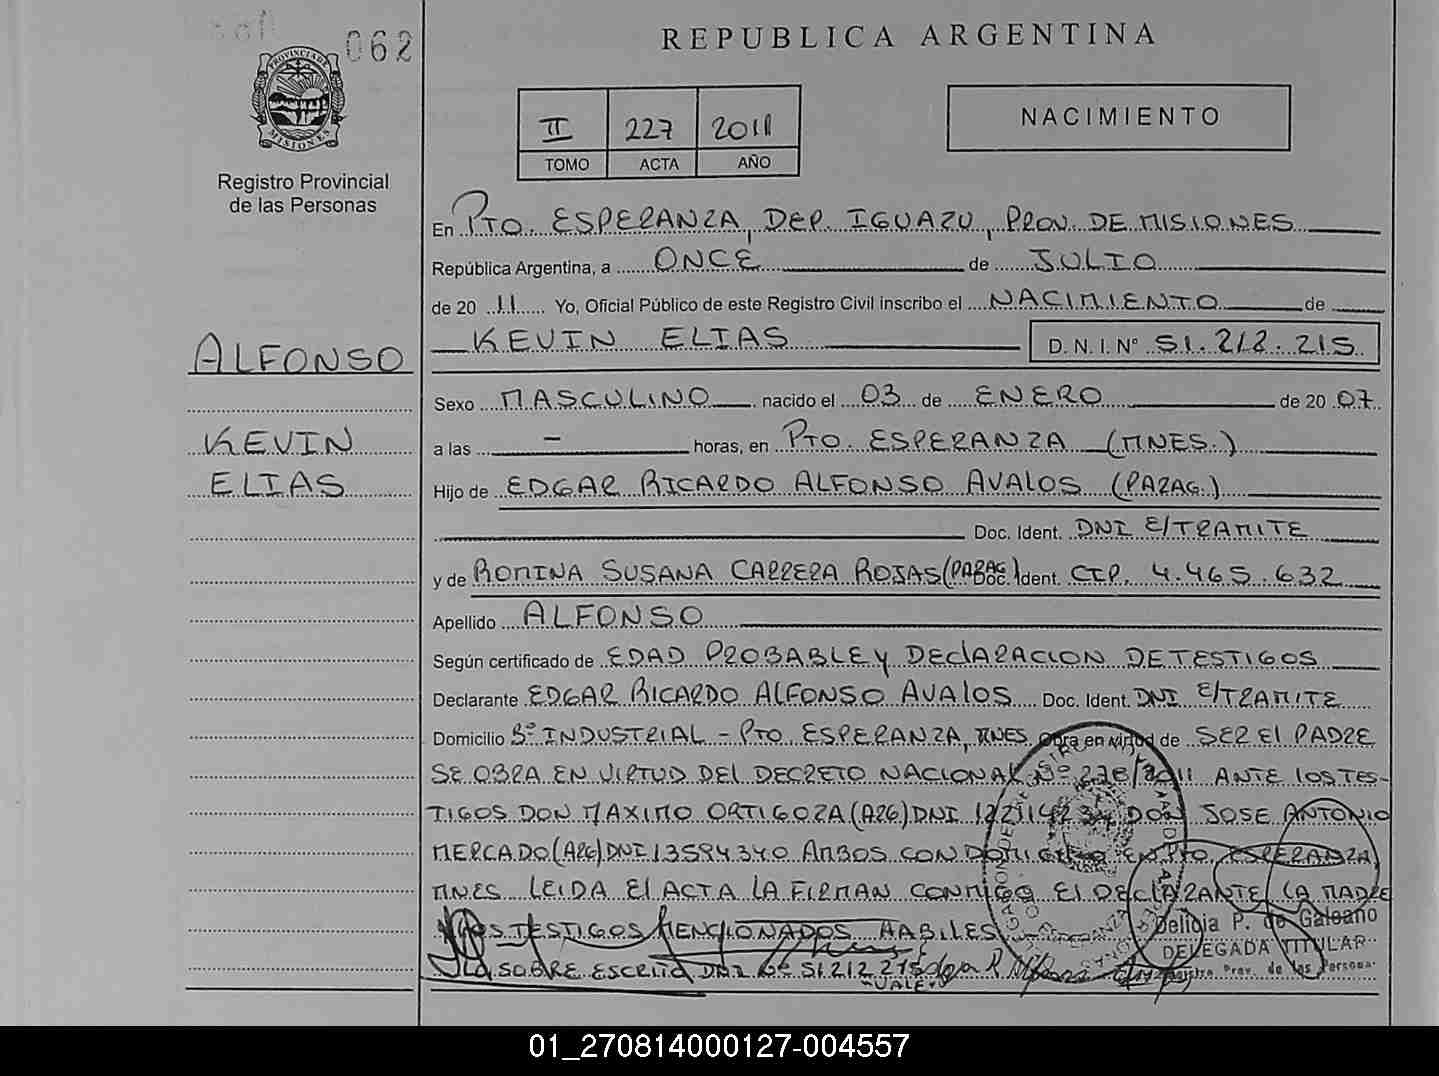 062
PROVINCIA DE
MISIONES
Registro Provincial
de las Personas
REPUBLICA ARGENTINA
II 227 2011
TOMO ACTA AÑO
NACIMIENTO
ALFONSO
KEVIN
ELIAS
En PTO. ESPERANZA, DEP. IGUAZU, PROV. DE MISIONES
República Argentina, a ONCE de JULIO
de 20 11 Yo, Oficial Público de este Registro Civil inscribo el NACIMIENTO de
KEVIN ELIAS D. N. I. N° 51.212.215
Sexo MASCULINO nacido el 03 de ENERO de 20 07
a las - horas, en PTO. ESPERANZA (MNES.)
Hijo de EDGAR RICARDO ALFONSO AVALOS (PARAG.)
Doc. Ident. DNI E/TRAMITE
y de ROMINA SUSANA CARRERA ROJAS (PARAG.) Doc. Ident. CIP. 4.465.632
Apellido ALFONSO
Según certificado de EDAD PROBABLE y DEClARACION DE TESTIGOS
Declarante EDGAR RICARDO ALFONSO AVAlOS Doc. Ident. DNI E/TRAMITE
Domicilio B° INDUSTRIAL - PTO ESPERANZA, MNES Obra en virtud de SER El PADRE
SE OBRA EN VIRTUD DEl DECRETO NACIONAL N° 278/2011 ANTE lOS TES-
TIGOS DON MAXIMO ORTIGOZA (ARG) DNI DON JOSE ANTONIO
MERCADO (ARG) DNI 13594340 AMBOS CON DOMICILIO EN PTO. ESPERANZA,
MNES. LEIDA El ACTA LA FIRMAN CONMIGO El DEClARANTE LA MADRE
lOS TESTIGOS MENCIONADOS HABILES
Delicia P. de Galeano
DELEGADA TITULAR
Registro Prov. de las Personas
SOBRE ESCRITO DNI N° 51.212.215
"VALE"
01_270814000127-004557